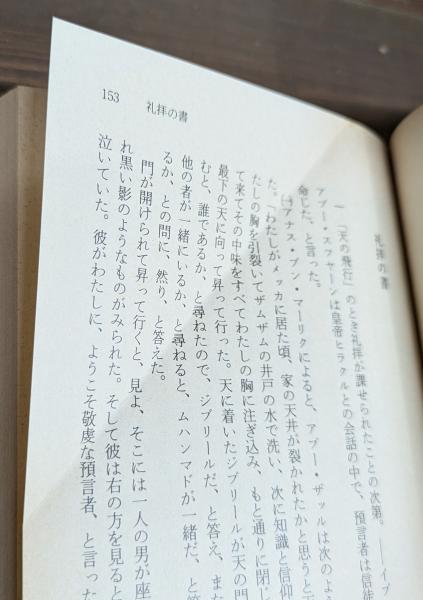 153　礼拝の書
礼拝の書
一　「天の飛行」のとき礼拝が課せられたことの次第。――イブ
アブー・スフヤーンは皇帝ヒラクルとの会話の中で、預言者は信徒
命じた、と言った。
㈠アナス・ブン・マーリクによると、アブー・ザッルは次のよう
た。「わたしがメッカに居た頃、家の天井が裂かれたかと思うと
たしの胸を引裂いてザムザムの井戸の水で洗い、次に知識と信仰
て来てその中味をすべてわたしの胸に注ぎ込み、もと通りに閉じ
最下の天に向って昇って行った。天に着いたジブリールが天の門
むと、誰であるか、と尋ねたので、ジブリールだ、と答え、また
他の者が一緒にいるか、と尋ねると、ムハンマドが一緒だ、と
るか、との問に、然り、と答えた。
門が開けられて昇って行くと、見よ、そこには一人の男が座
れ黒い影のようなものがみられた。そして彼は右の方を見ると
泣いていた。彼がわたしに、ようこそ敬虔な預言者、と言った